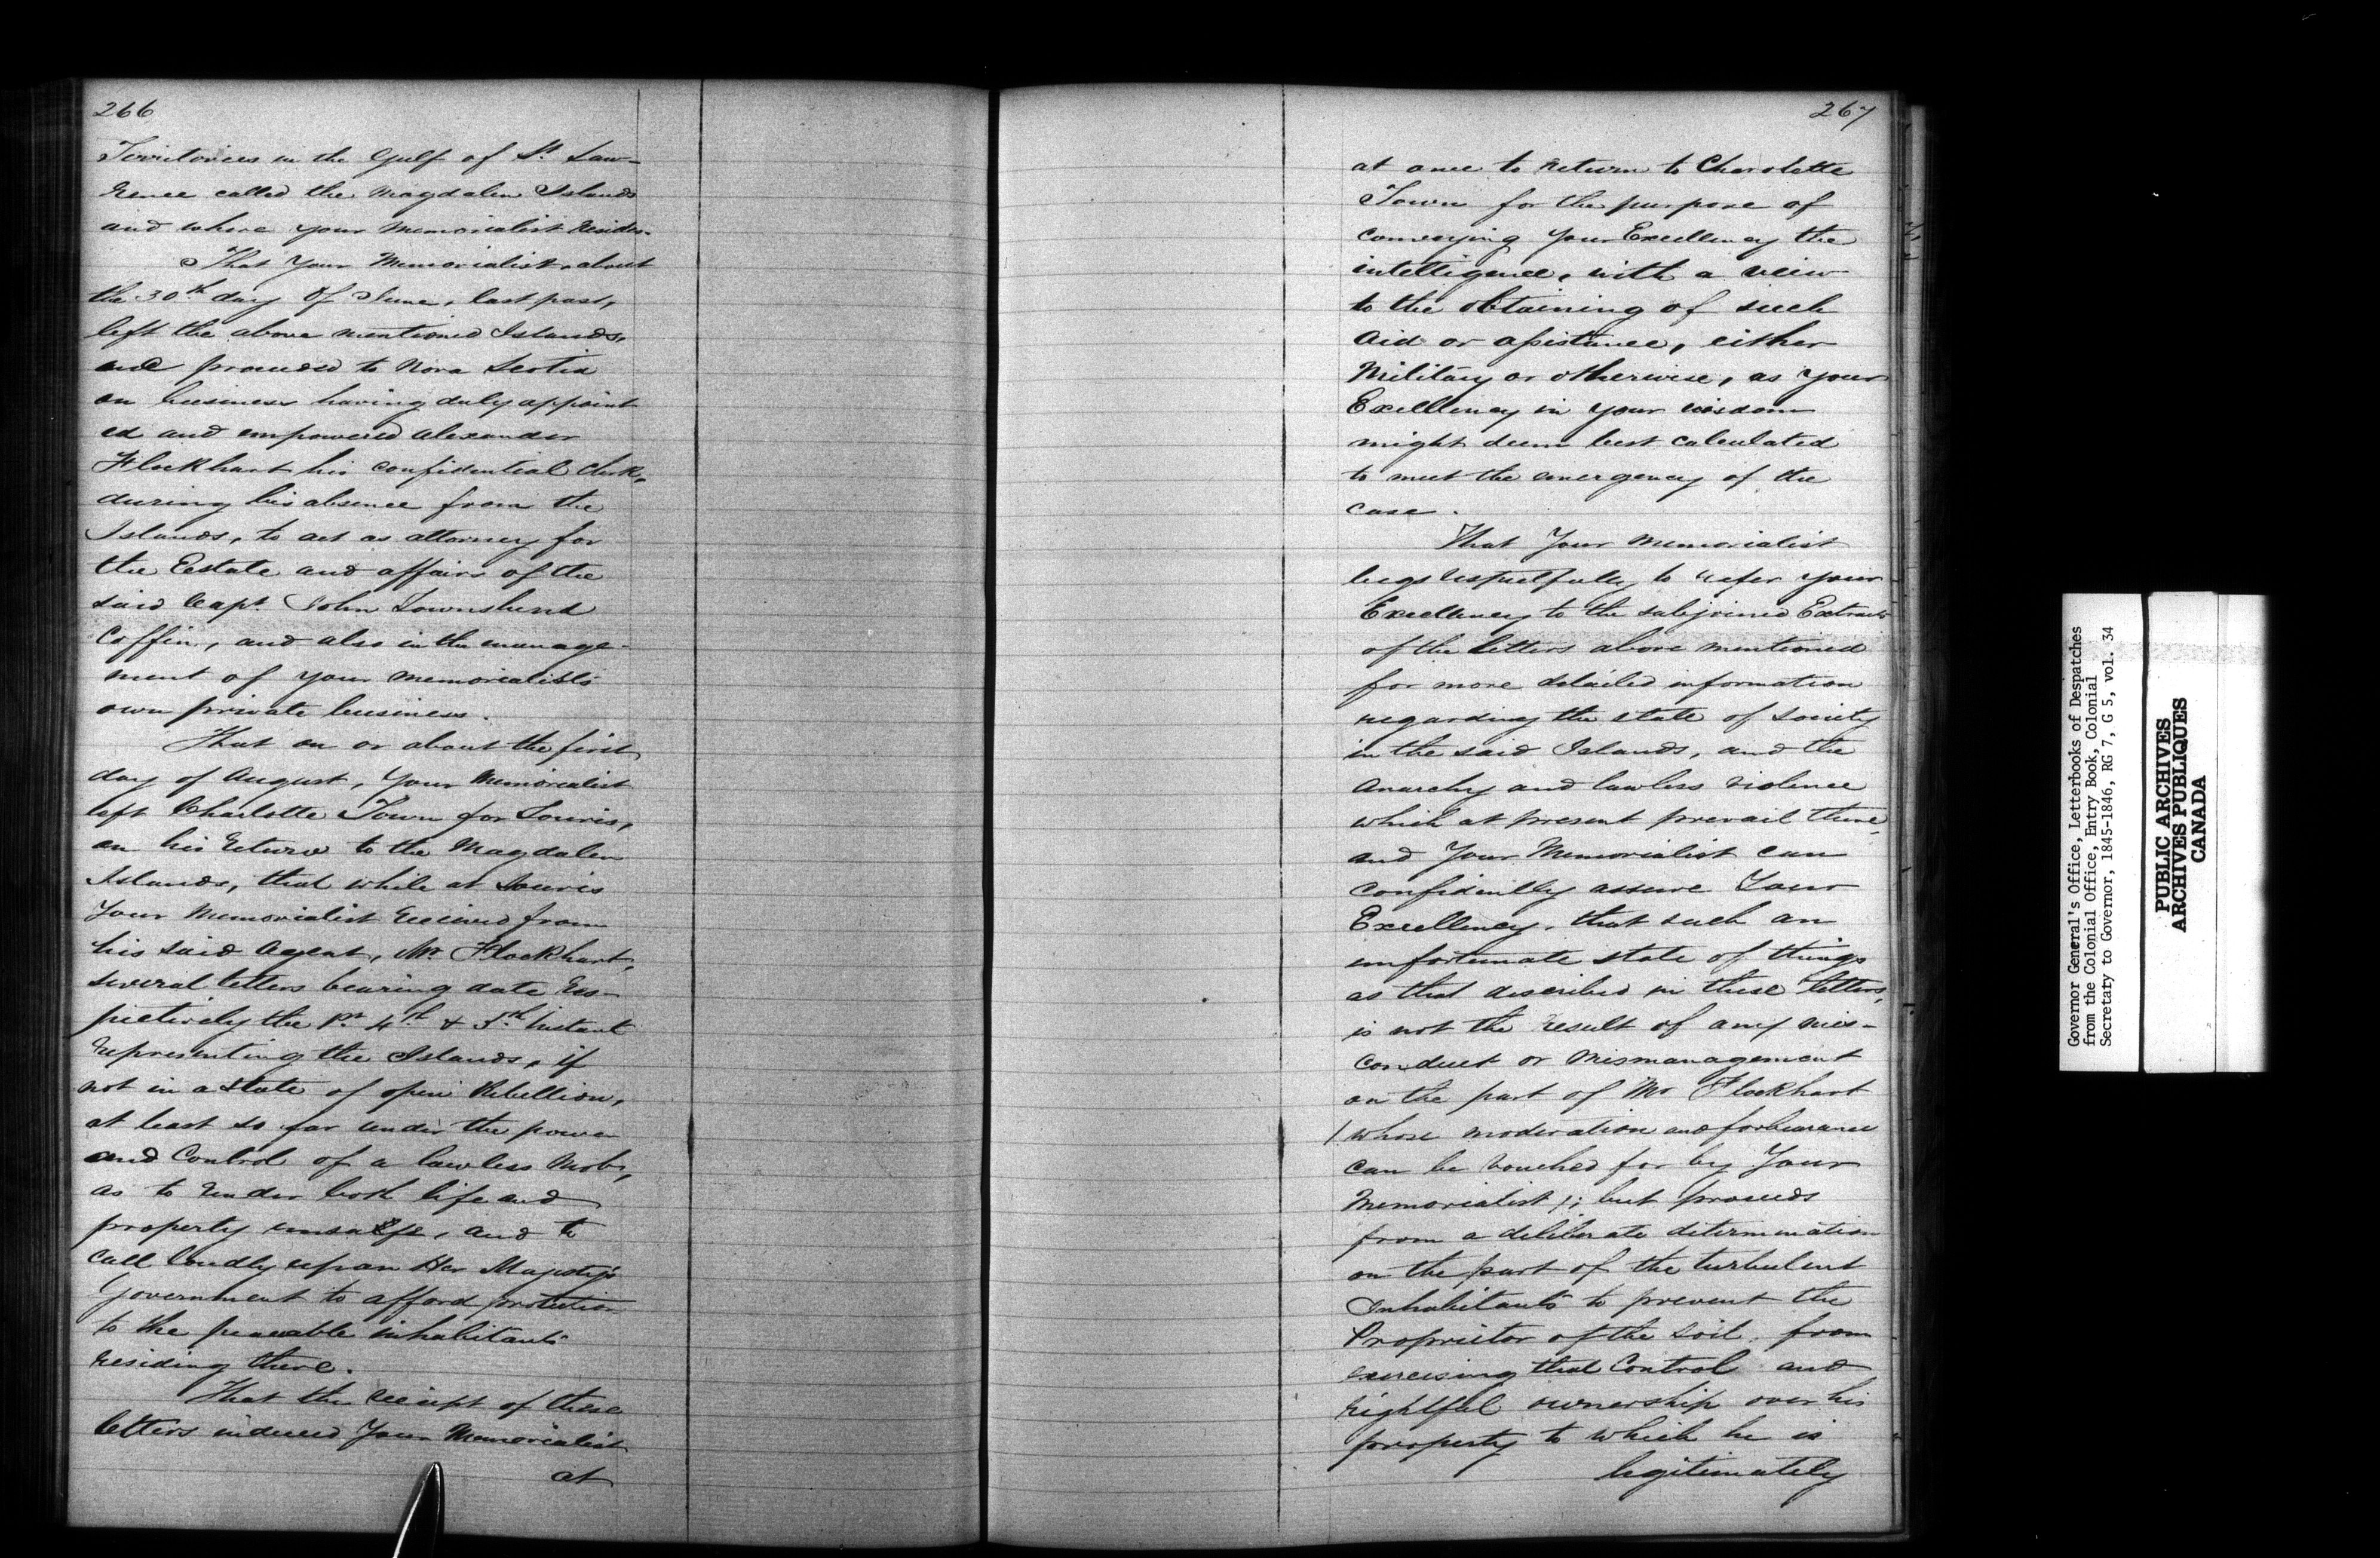 266
Territories in the Gulf of St. Law-
rence called the Magdalen Islands
and where your Memorialist resides.
That Your Memorialist, about
the 30th day of June, last past,
left the above mentioned Islands,
and proceeded to Nova Scotia
on business having duly appoint
ed and empowered Alexander
Flockhart his confidential Clerk,
during his absence from the
Islands, to act as attorney for
the Estate and affairs of the
said Capt. John Townshend
Coffin, and also in the manage-
ment of your memorialist's
own private business.
That on or about the first
day of August, Your Memorialist
left Charlotte Town for Souris,
on his return to the Magdalen
Islands, that while at Souris
Your Memorialist received from
his said Agent, Mr. Flockhart,
several letters bearing date res-
pectively the 1st 4th & 5th Instant
representing the Islands, if
not in a state of open Rebellion,
at least so far under the power
and Control of a lawless Mob,
as to render both life and
property unsafe, and to
call loudly upon Her Majesty's
Government to afford protection
to the peaceable inhabitants
residing there.
That the receipt of these
letters induced Your Memorialist
at
267
at once to return to Charolette
Town for the purpose of
conveying Your Excellency the
intelligence, with a veiw
to the obtaining of such
Aid or assistance, either
Military or otherwise, as Your
Excellency in your wisdom
might deem best calculated
to meet the emergency of the
case.
That Your Memorialist
begs respectfully to refer your
Excellency to the subjoined Extracts
of the letters above mentioned
for more detailed information
regarding the state of society
in the said Islands, and the
Anarchy and lawless violence
which at present prevail there,
and Your Memorialist can
confidently assure Your
Excellency, that such an
unfortunate state of things
as that described in these letters,
is not the result of any mis-
conduct or mismanagement
on the part of Mr Flockhart
/whose moderation and forbearance
can be vouched for by Your
Memorialist/; but proceeds
from a deliberate determination
on the part of the turbulent
Inhabitants to prevent the
Proprietor of the soil, from
exercising that Control and
rightful ownership over his
property to which he is
legitimately
Governor General's Office, Letterbooks of Despatches
from the Colonial Office, Entry Book, Colonial
Secretary to Governor, 1845-1846, RG 7, G 5, vol. 34
PUBLIC ARCHIVES
ARCHIVES PUBLIQUES
CANADA